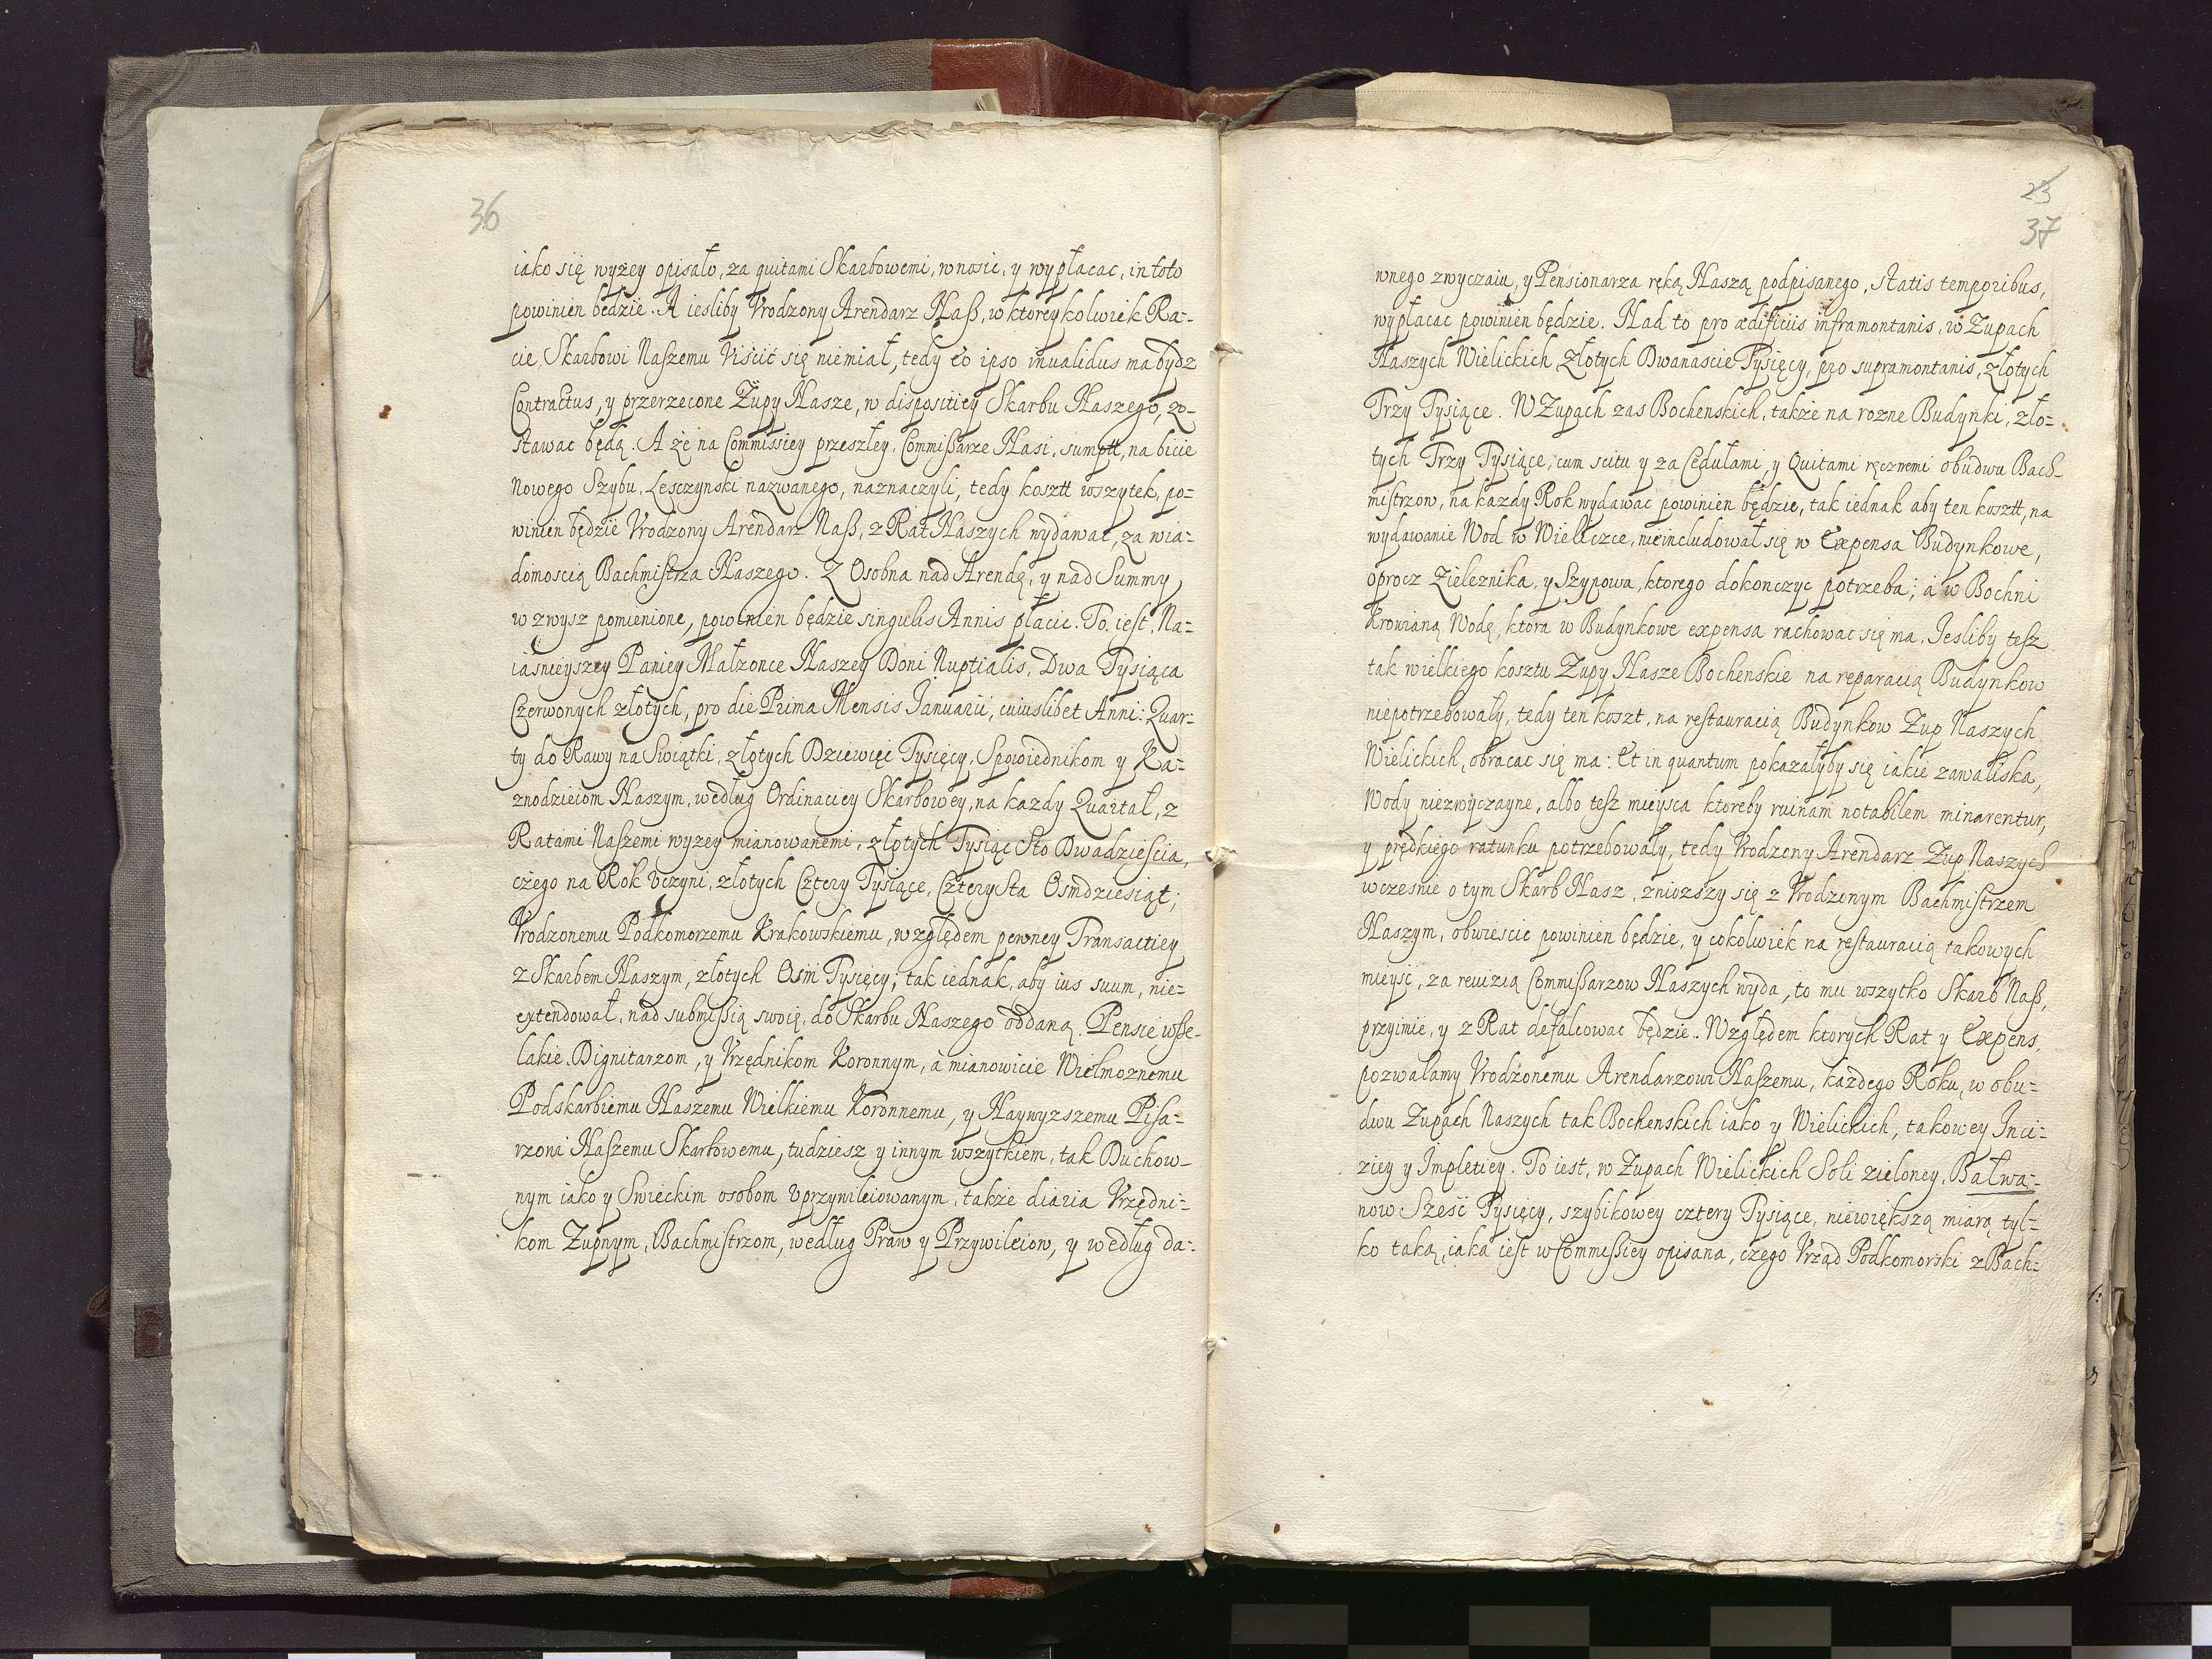 36
iako się wyzey opisało, za quitami Skarbowemi, wnosic, y wypłacac, in toto
powinien będzie. A iesliby Vrodzony Arendarz Naß, w ktoreykolwiek Ra=
cie, Skarbowi Naszemu Viścić się niemiał, tedy eo ipso invalidus ma bydz
Contractus, y przerzeczone Zupy Nasze, w dispositiey Skarbu Naszego, zo-
stawac będą. A że na Commissiey przeszłey, Commißarze Nasi, sumptt, na bicie
Nowego Szybu, Lesczynski nazwanego, naznaczyli, tedy kosztt wszytek, po=
winien będzie Vrodzony Arendarz Naß, z Rat Naszych wydawać, za wia=
domoscią Bachmistrza Naszego. Z Osobna nad Arendę, y nad Summy
w zwysz pomienione, powinien będzie singulis Annis płacic. To iest, Na=
iaśnieyszey Paniey Małzonce Naszey Doni Nuptialis, Dwa Tysiąca
Czerwonych złotych, pro die Prima Mensis Ianuarii, cuiuslibet Anni: Quar=
ty do Rawy na Swiątki, złotych Dziewięć Tysięcy, Spowiednikom y Ka=
znodzieiom Naszym, według Ordinaciey Skarbowey, na kazdy Quartał, z
Ratami Naszemi wyzey mianowanemi, złotych Tysiąc Sto Dwadziescia,
czego na Rok Vczyni, złotych Cztery Tysiące, Czterysta Osmdziesiąt;
Vrodzonemu Podkomorzemu Krakowskiemu, względem pewney Transactiey
z Skarbem Naszym, złotych Osm Tysięcy; tak iednak, aby ius suum, nie=
extendował, nad submissią swoię, do Skarbu Naszego oddaną. Pensie wße-
lakie, Dignitarzom, y Vrzędnikom Koronnym, à mianowicie Wielmoznemu
Podskarbiemu Naszemu Wielkiemu Koronnemu, y Naywyzszemu Pisa=
rzowi Naszemu Skarbowemu, tudziesz y innym wszytkiem, tak Duchow-
nym iako y Swieckim osobom Vprzywileiowanym, także diaria Vrzędni=
kom Zupnym, Bachmistrzom, według Praw y Przywileiow, y według da=
23
37
wnego zwyczaiu, y Pensionarza ręką Naszą podpisanego, statis temporibus,
wypłacac powinien będzie. Nad to pro ædificiis inframontanis, w Zupach
Naszych Wielickich, złotych Dwanascie Tysięcy, pro supramontanis, złotych
Trzy Tysiące. W Zupach zas Bochenskich, także na rozne Budynki, zło=
tych Trzy Tysiące, cum scitu y za Cedułami, y Quitami ręcznemi obudwu Bach-
mistrzow, na kazdy Rok wydawac powinien będzie, tak iednak aby ten kosztt, na
wydawanie Wod w Wieliczce, nieincludował się w Expensa Budynkowe,
oprocz Zieleznika, y Szypowa, ktorego dokonczyc potrzeba; à w Bochni
Krowianą Wodę, ktora w Budynkowe expensa rachowac się ma. Iesliby tesz
tak wielkiego kosztu Zupy Nasze Bochenskie na reparacią Budynkow
niepotrzebowały, tedy ten koszt, na restauracią Budynkow Zup Naszych
Wielickich, obracac się ma: Et in quantum pokazałyby się iakie zawaliska,
Wody niezwyczayne, albo tesz mieysca ktoreby ruinam notabilem minarentur,
y prędkiego ratunku potrzebowały, tedy Vrodzony Arendarz Zup Naszych
wczesnie o tym Skarb Nasz, zniozszy się z Vrodzonym Bachmistrzem
Naszym, obwiescic powinien będzie, y cokolwiek na restauracią takowych
mieysc, za rewizią Commißarzow Naszych wyda, to mu wszytko Skarb Naß,
przyimie, y z Rat defalcowac będzie. Względem ktorych Rat y Expens,
pozwalamy Vrodzonemu Arendarzowi Naszemu, każdego Roku, w obu=
dwu Zupach Naszych tak Bochenskich iako y Wielickich, takowey Inci=
ziey y Impletiey. To iest, w Zupach Wielickich Soli zieloney, Bałwa=
now Sześć Tysięcy, szybikowey cztery Tysiące, niewiększą miarą tyl=
ko taką, iaka iest w Commißiey opisana, czego Vrząd Podkomorski z Bach=